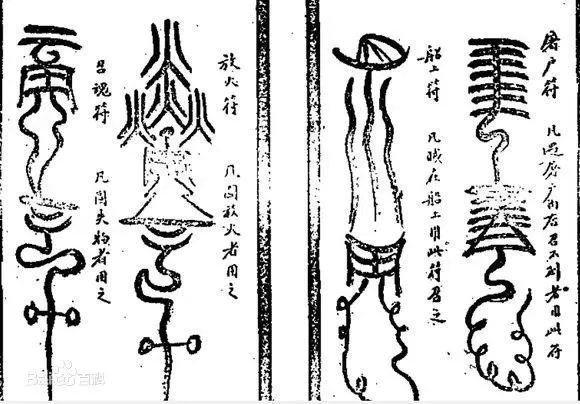 屠户符
凡遇屠户召不到者用此符
船上符
凡贼在船上用此符召之
放火符
凡放火者用之
魂符
凡失物者用之
Baidu百科